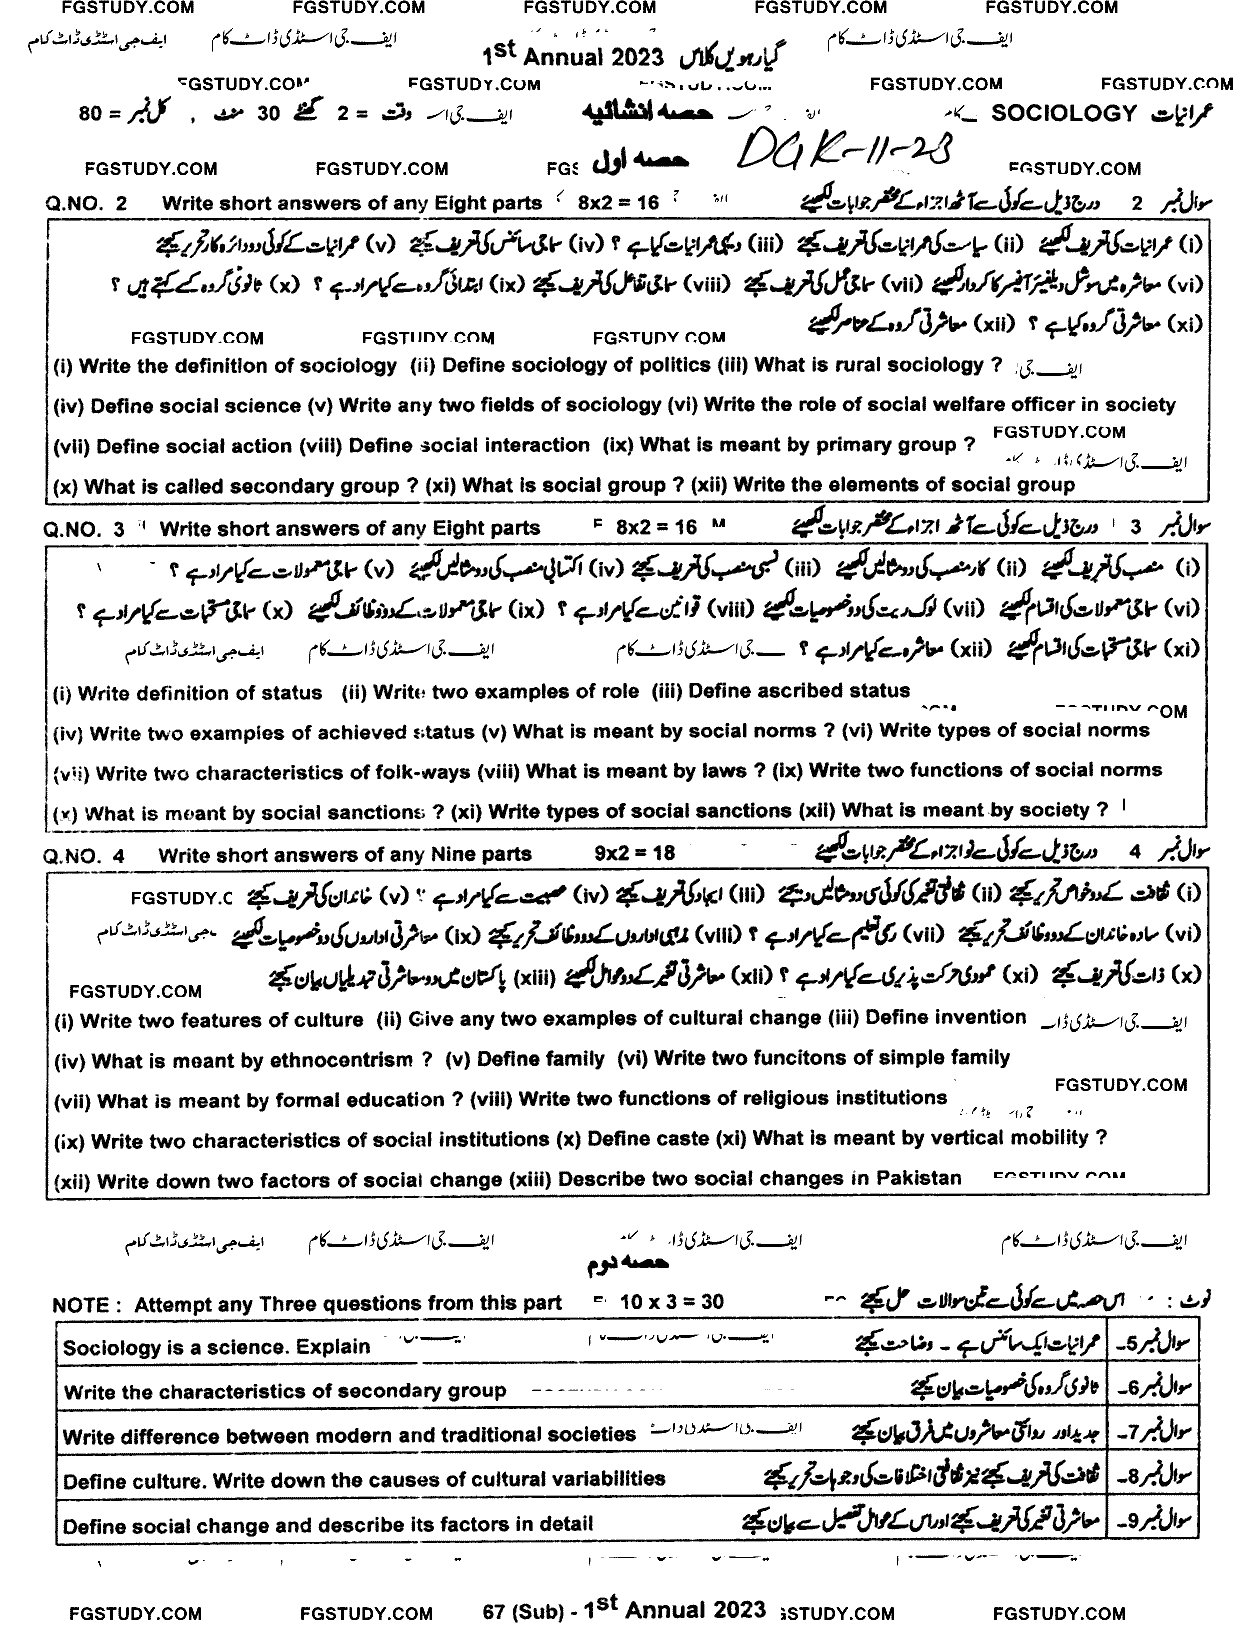 FGSTUDY.COM FGSTUDY.COM FGSTUDY.COM FGSTUDY.COM FGSTUDY.COM
ایف جی اسٹڈی ڈاٹ کام ایف جی اسٹڈی ڈاٹ کام ایف جی اسٹڈی ڈاٹ کام
1st Annual 2023 گیارہویں کلاس
FGSTUDY.COM FGSTUDY.COM FGSTUDY.COM FGSTUDY.COM
عمرانیات SOCIOLOGY حصہ انشائیہ وقت = 2 گھنٹے 30 منٹ , کل نمبر = 80
FGSTUDY.COM FGSTUDY.COM حصہ اول DGK-11-23 FGSTUDY.COM
Q.NO. 2 Write short answers of any Eight parts 8x2 = 16 سوال نمبر 2 درج ذیل سے کوئی سے آٹھ اجزاء کے مختصر جوابات لکھیئے
(i) عمرانیات کی تعریف لکھیئے (ii) سیاست کی عمرانیات کی تعریف کیجئے (iii) دیہی عمرانیات کیا ہے ؟ (iv) سماجی سائنس کی تعریف کیجئے (v) عمرانیات کے کوئی دو دائرہ کار تحریر کیجئے
(vi) معاشرہ میں سوشل ویلفیئر آفیسر کا کردار لکھیئے (vii) سماجی عمل کی تعریف کیجئے (viii) سماجی تفاعل کی تعریف کیجئے (ix) ابتدائی گروہ سے کیا مراد ہے ؟ (x) ثانوی گروہ کسے کہتے ہیں ؟
(xi) معاشرتی گروہ کیا ہے ؟ (xii) معاشرتی گروہ کے عناصر لکھیئے
FGSTUDY.COM FGSTUDY.COM FGSTUDY COM
(i) Write the definition of sociology (ii) Define sociology of politics (iii) What is rural sociology ?
(iv) Define social science (v) Write any two fields of sociology (vi) Write the role of social welfare officer in society
(vii) Define social action (viii) Define social interaction (ix) What is meant by primary group ? FGSTUDY.COM
(x) What is called secondary group ? (xi) What is social group ? (xii) Write the elements of social group
Q.NO. 3 Write short answers of any Eight parts 8x2 = 16 سوال نمبر 3 درج ذیل سے کوئی سے آٹھ اجزاء کے مختصر جوابات لکھیئے
(i) منصب کی تعریف لکھیئے (ii) کار منصب کی دو مثالیں لکھیئے (iii) نسبی منصب کی تعریف کیجئے (iv) اکتسابی منصب کی دو مثالیں لکھیئے (v) سماجی معمولات سے کیا مراد ہے ؟
(vi) سماجی معمولات کی اقسام لکھیئے (vii) لوک ریت کی دو خصوصیات لکھیئے (viii) قوانین سے کیا مراد ہے ؟ (ix) سماجی معمولات کے دو وظائف لکھیئے (x) سماجی مستحبات سے کیا مراد ہے ؟
(xi) سماجی مستحبات کی اقسام لکھیئے (xii) معاشرہ سے کیا مراد ہے ؟ جی اسٹڈی ڈاٹ کام ایف جی اسٹڈی ڈاٹ کام ایف جی اسٹڈی ڈاٹ کام
(i) Write definition of status (ii) Write two examples of role (iii) Define ascribed status
(iv) Write two examples of achieved status (v) What is meant by social norms ? (vi) Write types of social norms
(vii) Write two characteristics of folk-ways (viii) What is meant by laws ? (ix) Write two functions of social norms
(x) What is meant by social sanctions ? (xi) Write types of social sanctions (xii) What is meant by society ?
Q.NO. 4 Write short answers of any Nine parts 9x2 = 18 سوال نمبر 4 درج ذیل سے کوئی سے نو اجزاء کے مختصر جوابات لکھیئے
(i) ثقافت کے دو خواص تحریر کیجئے (ii) ثقافتی تغیر کی کوئی سی دو مثالیں دیجئے (iii) ایجاد کی تعریف کیجئے (iv) عصبیت سے کیا مراد ہے ؟ (v) خاندان کی تعریف کیجئے FGSTUDY.C
(vi) سادہ خاندان کے دو وظائف تحریر کیجئے (vii) رسمی تعلیم سے کیا مراد ہے ؟ (viii) مذہبی اداروں کے دو وظائف تحریر کیجئے (ix) معاشرتی اداروں کی دو خصوصیات لکھیئے جی اسٹڈی ڈاٹ کام
(x) ذات کی تعریف کیجئے (xi) عمودی حرکت پذیری سے کیا مراد ہے ؟ (xii) معاشرتی تغیر کے دو عوامل لکھیئے (xiii) پاکستان میں دو معاشرتی تبدیلیاں بیان کیجئے
FGSTUDY.COM
(i) Write two features of culture (ii) Give any two examples of cultural change (iii) Define invention
(iv) What is meant by ethnocentrism ? (v) Define family (vi) Write two funcitons of simple family
FGSTUDY.COM
(vii) What is meant by formal education ? (viii) Write two functions of religious institutions
(ix) Write two characteristics of social institutions (x) Define caste (xi) What is meant by vertical mobility ?
(xii) Write down two factors of social change (xiii) Describe two social changes in Pakistan
ایف جی اسٹڈی ڈاٹ کام ایف جی اسٹڈی ڈاٹ کام ایف جی اسٹڈی ڈاٹ کام
حصہ دوم
NOTE : Attempt any Three questions from this part 10 x 3 = 30 نوٹ : اس حصہ میں سے کوئی سے تین سوالات حل کیجئے
Sociology is a science. Explain عمرانیات ایک سائنس ہے - وضاحت کیجئے سوال نمبر 5-
Write the characteristics of secondary group ثانوی گروہ کی خصوصیات بیان کیجئے سوال نمبر 6-
Write difference between modern and traditional societies جدید اور روائتی معاشروں میں فرق بیان کیجئے سوال نمبر 7-
Define culture. Write down the causes of cultural variabilities ثقافت کی تعریف کیجئے نیز ثقافتی اختلافات کی وجوہات تحریر کیجئے سوال نمبر 8-
Define social change and describe its factors in detail معاشرتی تغیر کی تعریف کیجئے اور اس کے عوامل تفصیل سے بیان کیجئے سوال نمبر 9-
FGSTUDY.COM FGSTUDY.COM 67 (Sub) - 1st Annual 2023 GSTUDY.COM FGSTUDY.COM